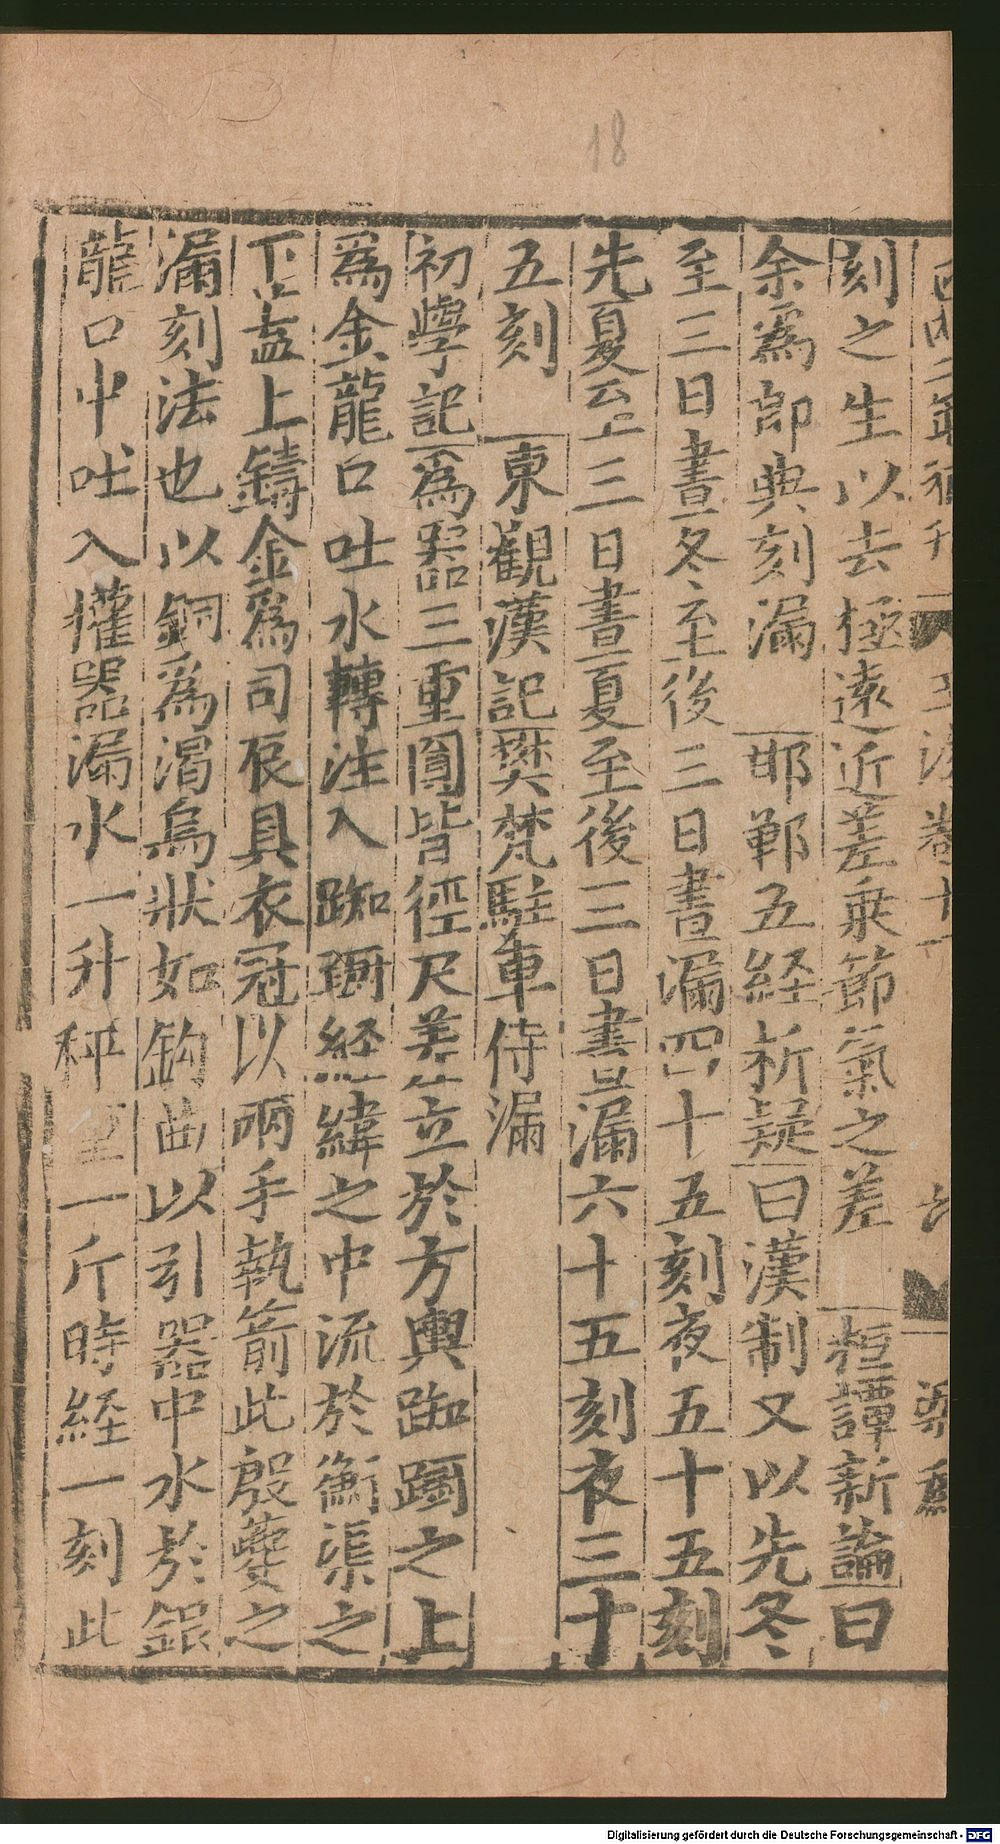 18
刻之生以去極遠近差乗節氣之差 桓譚新論曰
余爲郎典刻漏 邯鄲五経析疑曰漢制又以先冬
至三日晝冬至後三日晝漏四十五刻夜五十五刻
先夏至三日晝夏至後三日晝漏六十五刻夜三十
五刻 東觀漢記樊梵駐車侍漏
初學記爲器三重圎皆徑尺差立於方輿踟蹰之上
爲金龍口吐水轉注入踟蹰経緯之中流於衡渠之
下盖上鑄金爲司辰具衣冠以兩手執箭此殷蘷之
漏刻法也以銅爲渴烏狀如鈎曲以引器中水於銀
龍口中吐入權器漏水一升秤重一斤時経一刻此
Digitalisierung gefördert durch die Deutsche Forschungsgemeinschaft - DFG